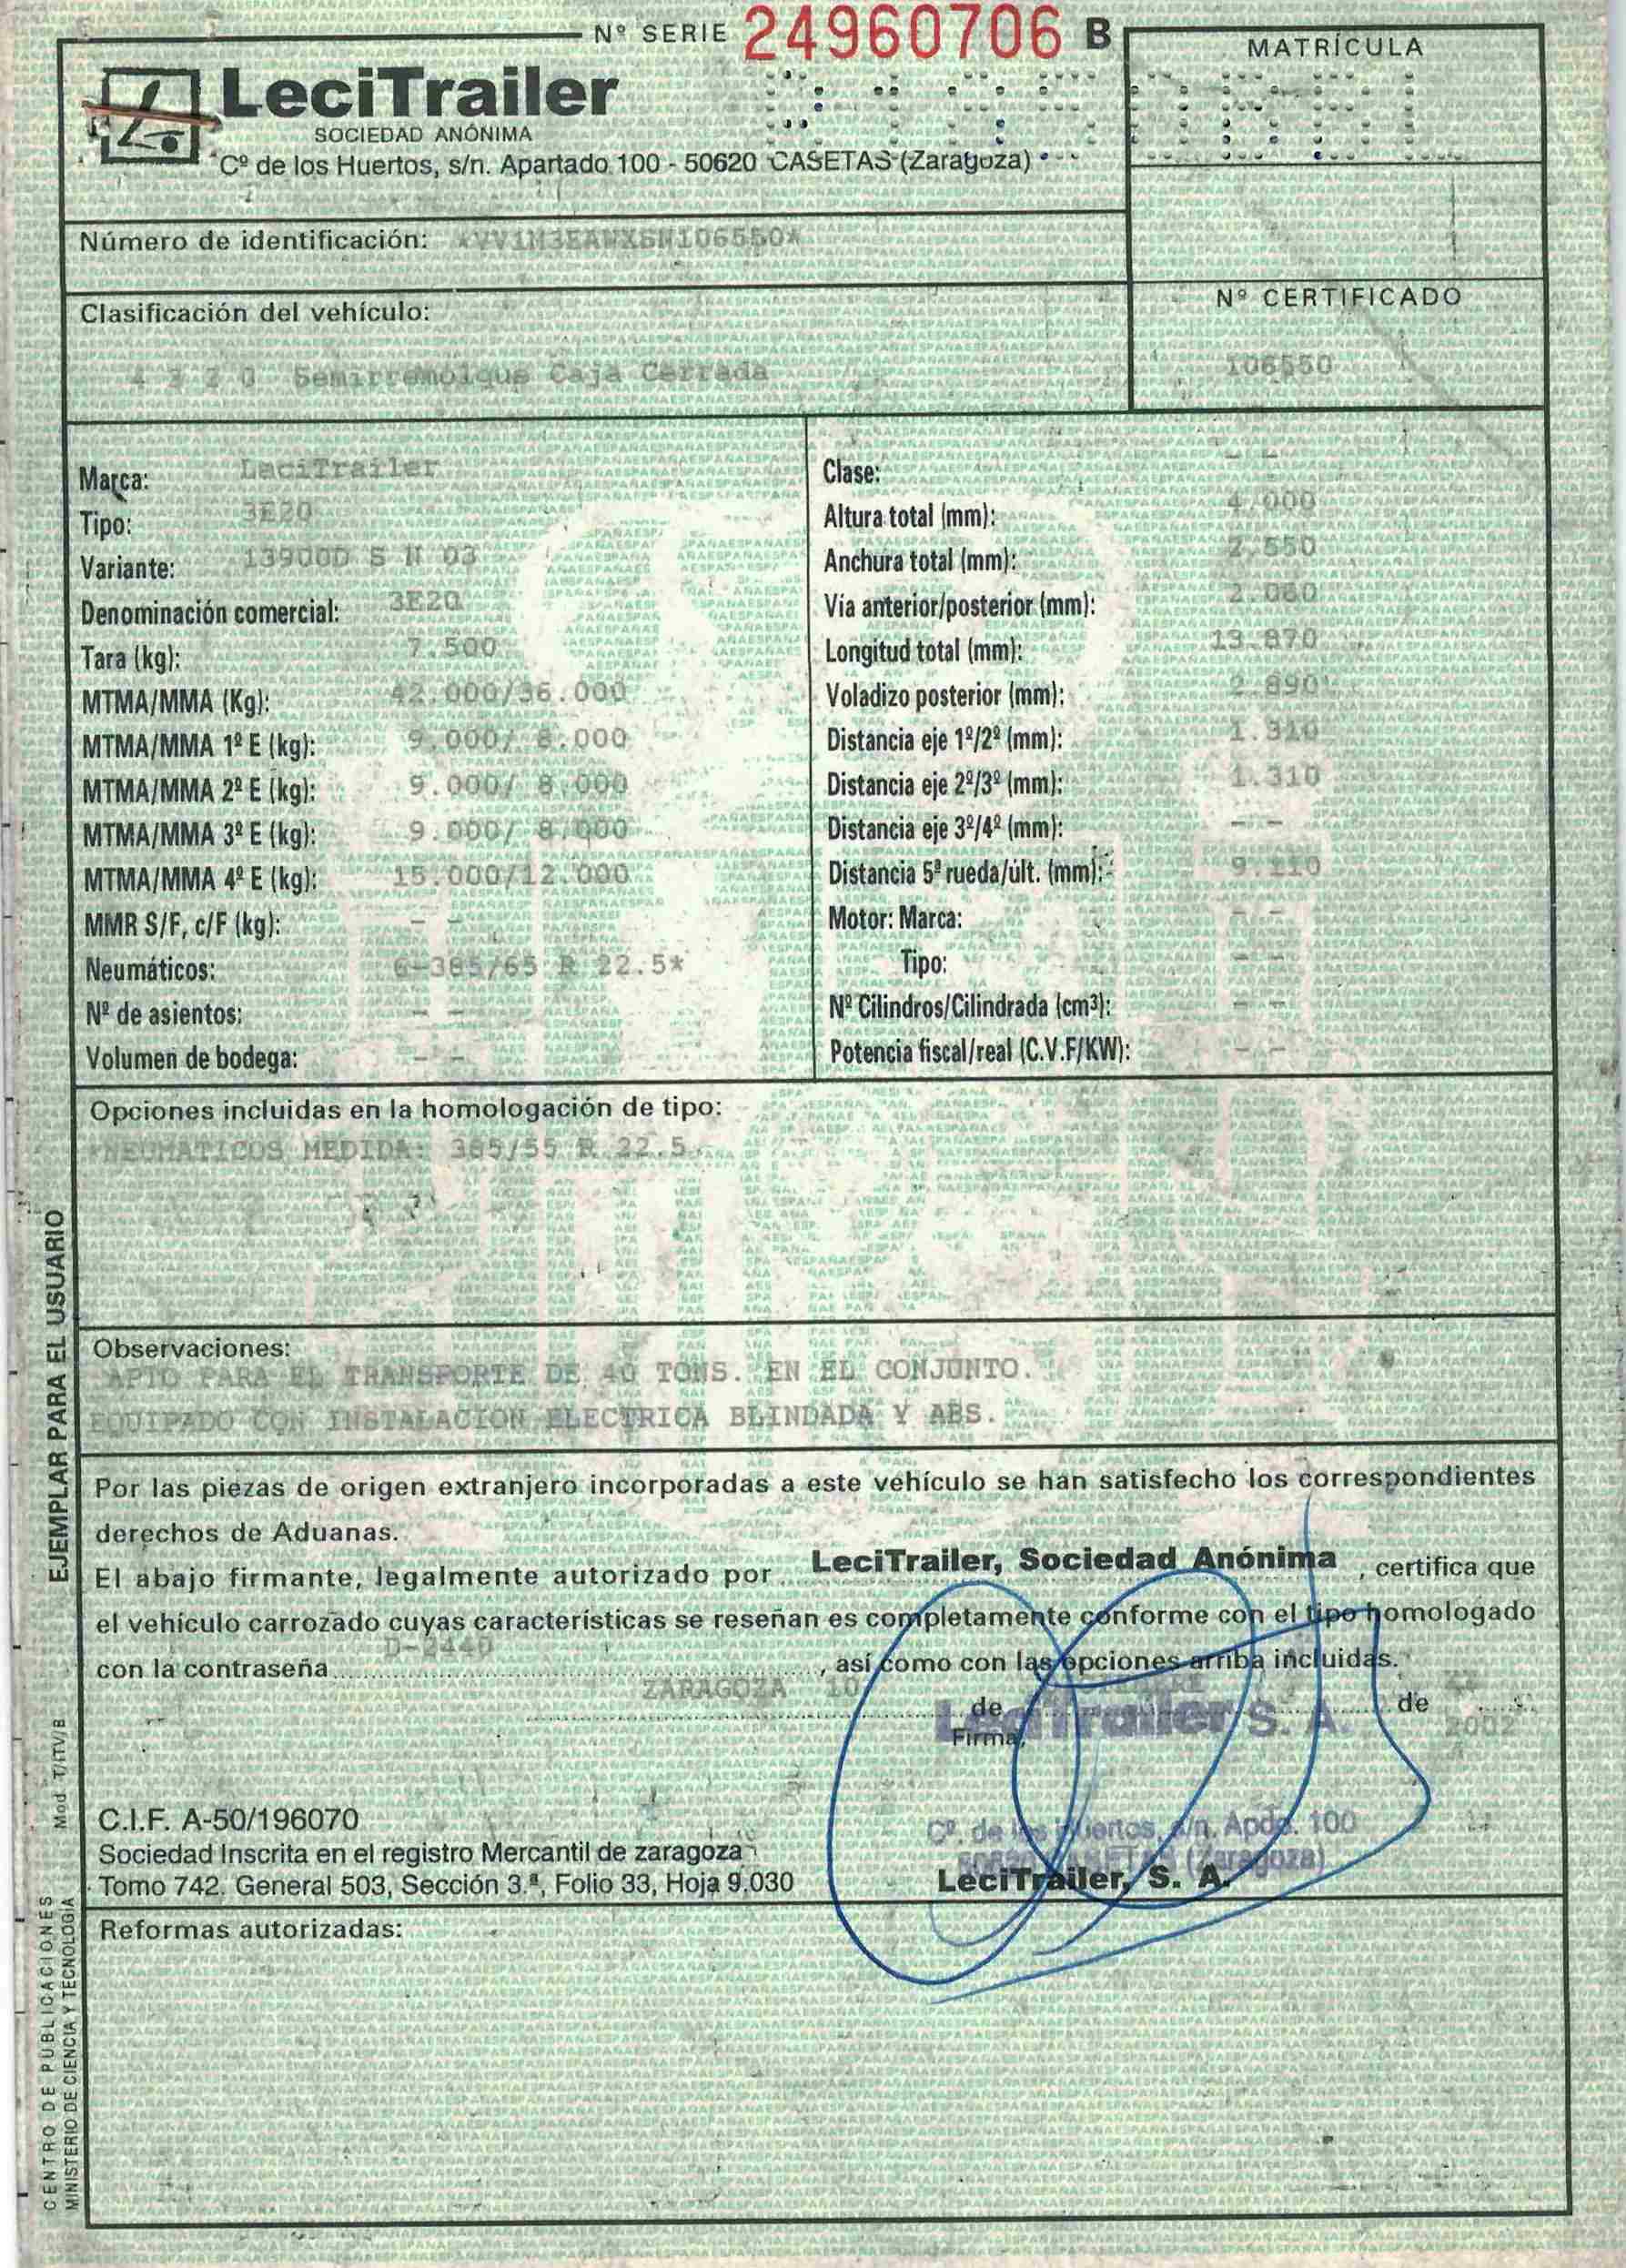 Nº SERIE 24960706 B
MATRÍCULA
LeciTrailer
SOCIEDAD ANÓNIMA
Cº de los Huertos, s/n. Apartado 100 - 50620 CASETAS (Zaragoza)
Número de identificación:
Clasificación del vehículo:
Nº CERTIFICADO
4 3 2 0 Semirremolque Caja Cerrada
106550
Marca: LeciTrailer
Tipo: 3E20
Variante: 13900D S N 03
Denominación comercial: 3E20
Tara (kg): 7.500
MTMA/MMA (Kg): 42.000/36.000
MTMA/MMA 1º E (kg): 9.000/ 8.000
MTMA/MMA 2º E (kg): 9.000/ 8.000
MTMA/MMA 3º E (kg): 9.000/ 8.000
MTMA/MMA 4º E (kg): 15.000/12.000
MMR S/F, c/F (kg): - -
Neumáticos: 6-385/65 R 22.5*
Nº de asientos: - -
Volumen de bodega: - -
Clase: - -
Altura total (mm): 4.000
Anchura total (mm): 2.550
Vía anterior/posterior (mm): 2.060
Longitud total (mm): 13.870
Voladizo posterior (mm): 2.890
Distancia eje 1º/2º (mm): 1.310
Distancia eje 2º/3º (mm): 1.310
Distancia eje 3º/4º (mm): - -
Distancia 5ª rueda/últ. (mm): 9.110
Motor: Marca: - -
Tipo: - -
Nº Cilindros/Cilindrada (cm³): - -
Potencia fiscal/real (C.V.F/KW): - -
Opciones incluidas en la homologación de tipo:
*NEUMATICOS MEDIDA: 385/55 R 22.5
Observaciones:
APTO PARA EL TRANSPORTE DE 40 TONS. EN EL CONJUNTO.
EQUIPADO CON INSTALACION ELECTRICA BLINDADA Y ABS.
Por las piezas de origen extranjero incorporadas a este vehículo se han satisfecho los correspondientes
derechos de Aduanas.
El abajo firmante, legalmente autorizado por LeciTrailer, Sociedad Anónima, certifica que
el vehículo carrozado cuyas características se reseñan es completamente conforme con el tipo homologado
con la contraseña D-2440, así como con las opciones arriba incluidas.
ZARAGOZA 10 de de 2002
Firma,
LeciTrailer S. A.
Cº. de los Huertos, s/n. Apdo. 100
50620 CASETAS (Zaragoza)
LeciTrailer, S. A.
C.I.F. A-50/196070
Sociedad Inscrita en el registro Mercantil de zaragoza
Tomo 742. General 503, Sección 3.ª, Folio 33, Hoja 9.030
Reformas autorizadas:
EJEMPLAR PARA EL USUARIO
Mod T/ITV/B
CENTRO DE PUBLICACIONES
MINISTERIO DE CIENCIA Y TECNOLOGÍA